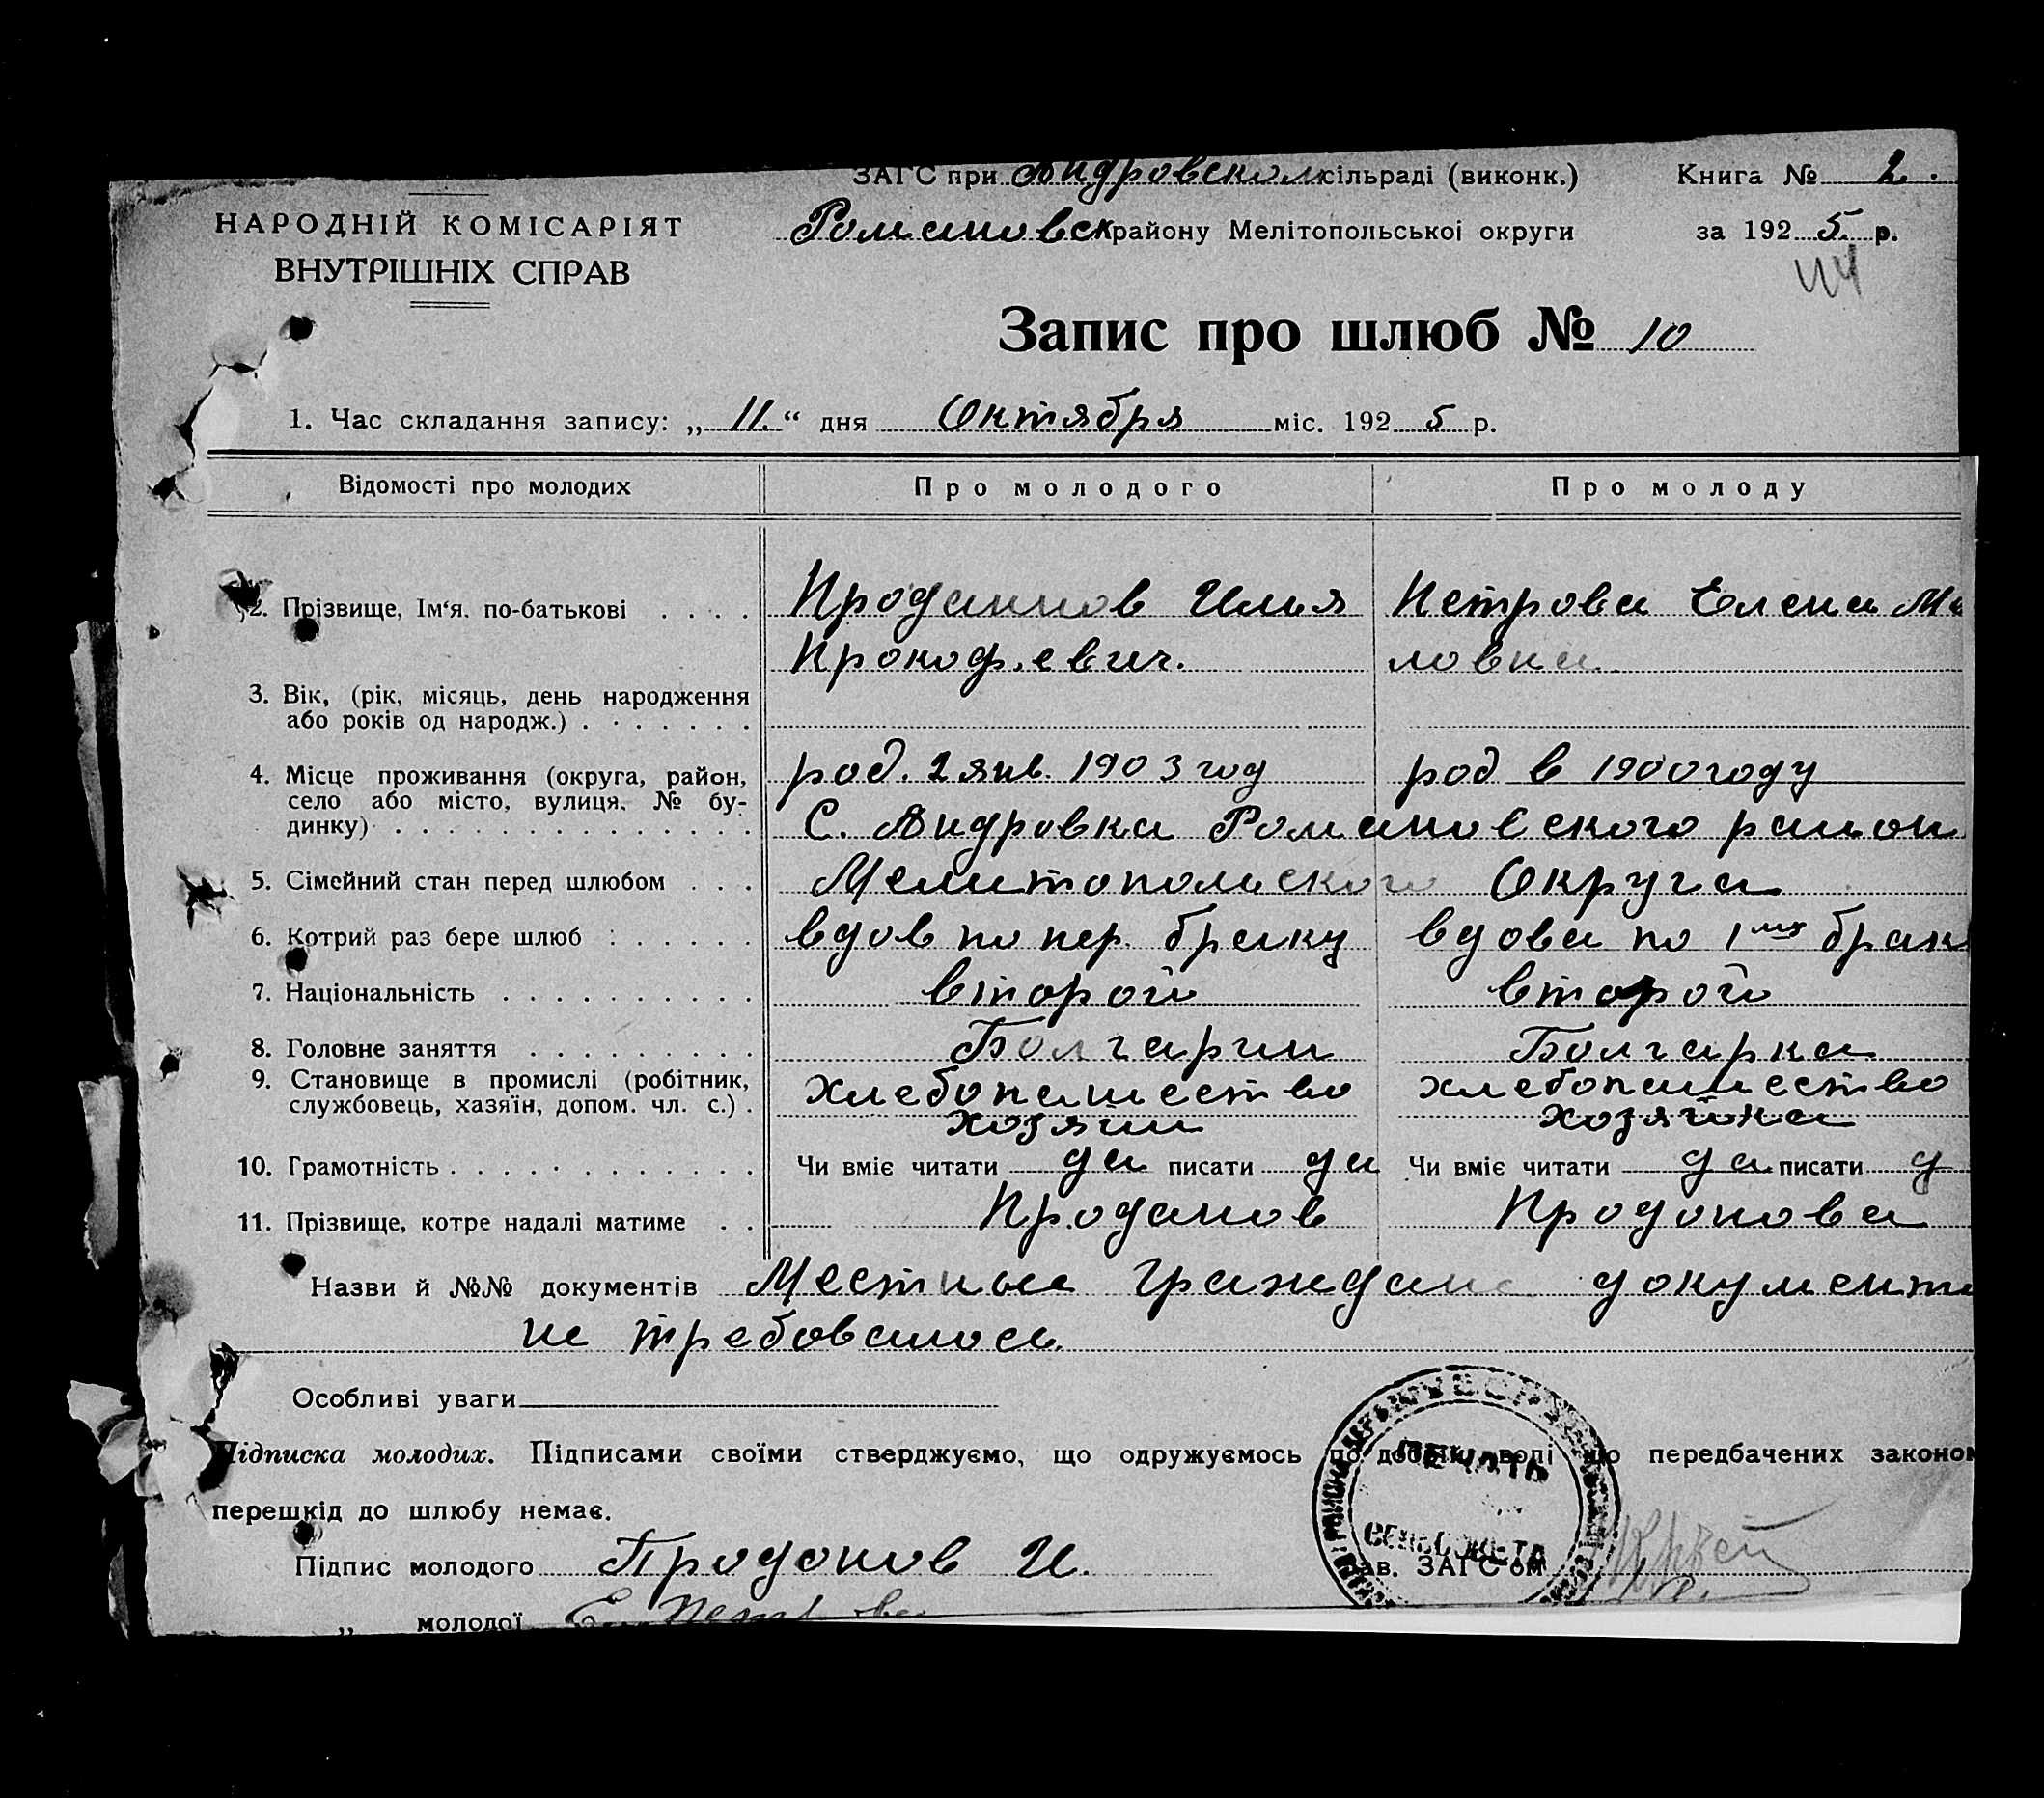 ЗАГС при Андровском сільраді (виконк.) Книга № 2.
НАРОДНІЙ КОМІСАРІЯТ Романовск району Мелітопольської округи за 1925 р.
ВНУТРІШНІХ СПРАВ
Запис про шлюб № 10
1. Час складання запису: „11.“ дня Октября міс. 1925 р.
Відомості про молодих Про молодого Про молоду
2. Прізвище, Ім‘я. по-батькові Проданнов Илья Петрова Елена Ма
Прокоф.евич. ловна
3. Вік, (рік, місяць, день народження
або років од народж.)
4. Місце проживання (округа, район, род. 2 янв. 1903 год род в 1900 году
село або місто, вулиця, № бу-
динку) С. Андровка Романовского район
5. Сімейний стан перед шлюбом Мелитопольского Округа
6. Котрий раз бере шлюб вдов по пер. браку вдова по 1му брак
7. Національність второй второй
8. Головне заняття Болгарин Болгарка
9. Становище в промислі (робітник, хлебопашество хлебопашество
службовець, хазяїн, допом. чл. с.) хозяин хозяйка
10. Грамотність Чи вміє читати да писати да Чи вміє читати да писати д
11. Прізвище, котре надалі матиме Проданов Продонова
Назви й №№ документів Местные граждане документ
не требовалось.
Особливі уваги
Підписка молодих. Підписами своїми стверджуємо, що одружуємось по добрій волі що передбачених законом
перешкід до шлюбу немає.
ПЕЧАТЬ
СЕЛЬСОВЕТА
Підпис молодого Продонов И. Зав. ЗАГС‘ом
„ молодої Е. Петрова